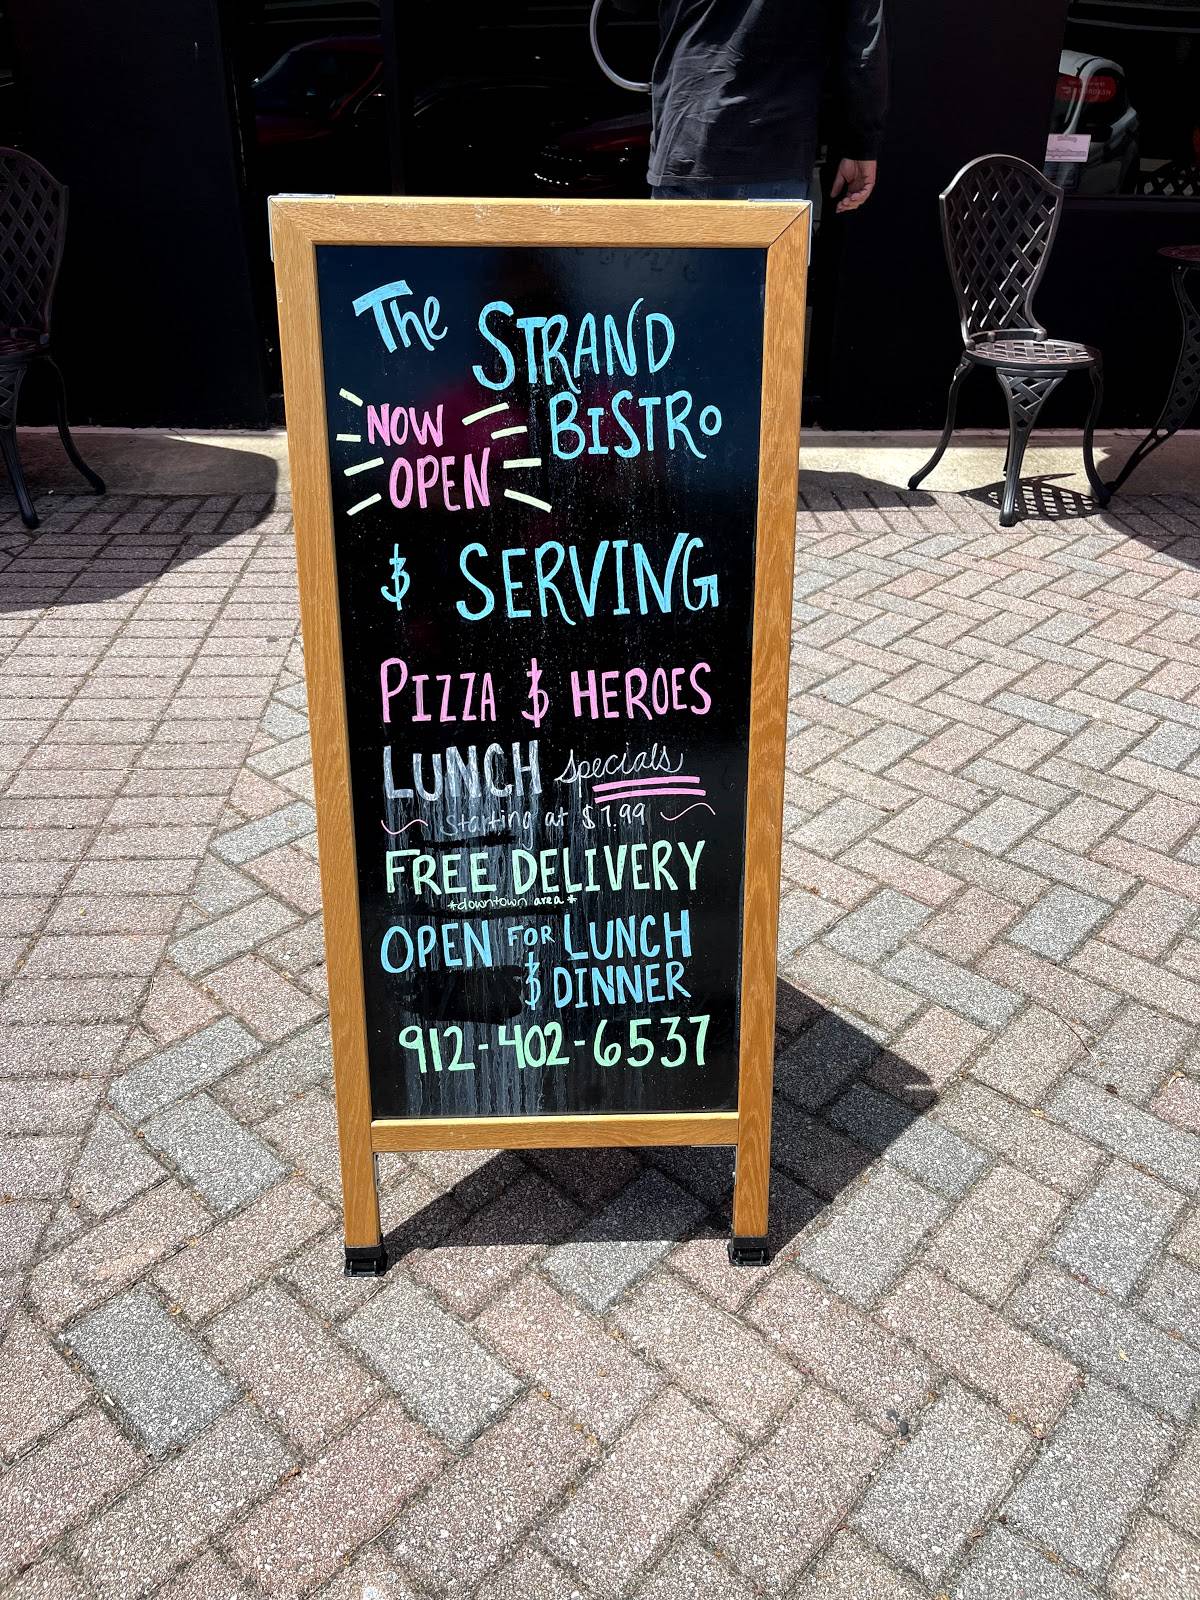 The STRAND
BISTRO
NOW
OPEN
& SERVING
PIZZA & HEROES
LUNCH specials
starting at $7.99
FREE DELIVERY
*downtown area*
OPEN FOR LUNCH
& DINNER
912-402-6537